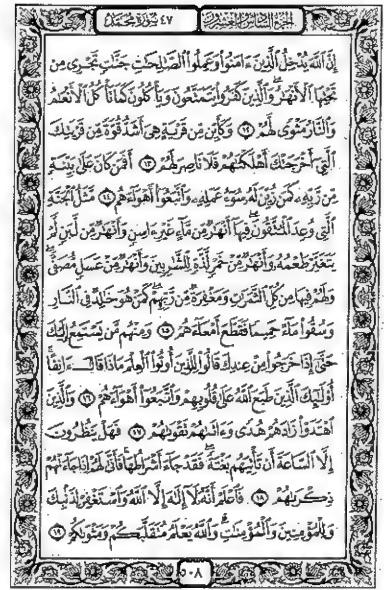 الجزء السادس والعشرون ٤٧ سورة محمد
إِنَّ اللَّهَ يُدْخِلُ الَّذِينَ ءَامَنُوا وَعَمِلُوا الصَّالِحَاتِ جَنَّاتٍ تَجْرِي مِن
تَحْتِهَا الْأَنْهَارُ وَالَّذِينَ كَفَرُوا يَتَمَتَّعُونَ وَيَأْكُلُونَ كَمَا تَأْكُلُ الْأَنْعَامُ
وَالنَّارُ مَثْوًى لَّهُمْ ١٢ وَكَأَيِّن مِّن قَرْيَةٍ هِيَ أَشَدُّ قُوَّةً مِّن قَرْيَتِكَ
الَّتِي أَخْرَجَتْكَ أَهْلَكْنَاهُمْ فَلَا نَاصِرَ لَهُمْ ١٣ أَفَمَن كَانَ عَلَىٰ بَيِّنَةٍ
مِّن رَّبِّهِ كَمَن زُيِّنَ لَهُ سُوءُ عَمَلِهِ وَاتَّبَعُوا أَهْوَاءَهُم ١٤ مَّثَلُ الْجَنَّةِ
الَّتِي وُعِدَ الْمُتَّقُونَ فِيهَا أَنْهَارٌ مِّن مَّاءٍ غَيْرِ ءَاسِنٍ وَأَنْهَارٌ مِّن لَّبَنٍ لَّمْ
يَتَغَيَّرْ طَعْمُهُ وَأَنْهَارٌ مِّنْ خَمْرٍ لَّذَّةٍ لِّلشَّارِبِينَ وَأَنْهَارٌ مِّنْ عَسَلٍ مُّصَفًّى
وَلَهُمْ فِيهَا مِن كُلِّ الثَّمَرَاتِ وَمَغْفِرَةٌ مِّن رَّبِّهِمْ كَمَنْ هُوَ خَالِدٌ فِي النَّارِ
وَسُقُوا مَاءً حَمِيمًا فَقَطَّعَ أَمْعَاءَهُمْ ١٥ وَمِنْهُم مَّن يَسْتَمِعُ إِلَيْكَ
حَتَّىٰ إِذَا خَرَجُوا مِنْ عِندِكَ قَالُوا لِلَّذِينَ أُوتُوا الْعِلْمَ مَاذَا قَالَ ءَانِفًا
أُولَٰئِكَ الَّذِينَ طَبَعَ اللَّهُ عَلَىٰ قُلُوبِهِمْ وَاتَّبَعُوا أَهْوَاءَهُمْ ١٦ وَالَّذِينَ
اهْتَدَوْا زَادَهُمْ هُدًى وَءَاتَاهُمْ تَقْوَاهُمْ ١٧ فَهَلْ يَنظُرُونَ
إِلَّا السَّاعَةَ أَن تَأْتِيَهُم بَغْتَةً فَقَدْ جَاءَ أَشْرَاطُهَا فَأَنَّىٰ لَهُمْ إِذَا جَاءَتْهُمْ
ذِكْرَاهُمْ ١٨ فَاعْلَمْ أَنَّهُ لَا إِلَٰهَ إِلَّا اللَّهُ وَاسْتَغْفِرْ لِذَنبِكَ
وَلِلْمُؤْمِنِينَ وَالْمُؤْمِنَاتِ وَاللَّهُ يَعْلَمُ مُتَقَلَّبَكُمْ وَمَثْوَاكُمْ ١٩
٥٠٨